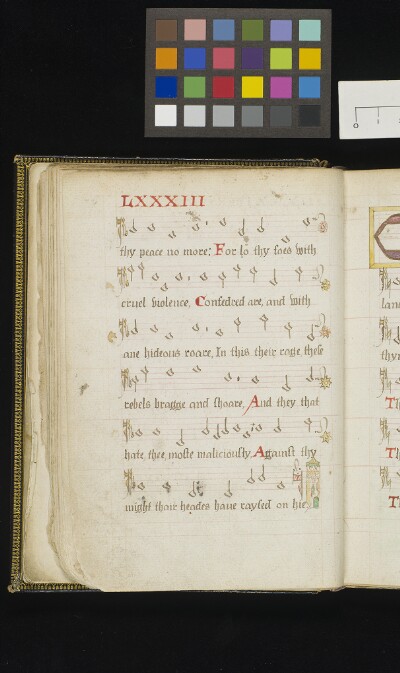 LXXXIII
thy peace no more; For lo thy foes with
cruel violence, Confedred are, and with
ane hideous roare, In this their rage, these
rebels bragge and shoare, And they that
hate thee, moste maliciously Against thy
might their heades have raysed on hie
lan
thy
Th
Th
T
0 1